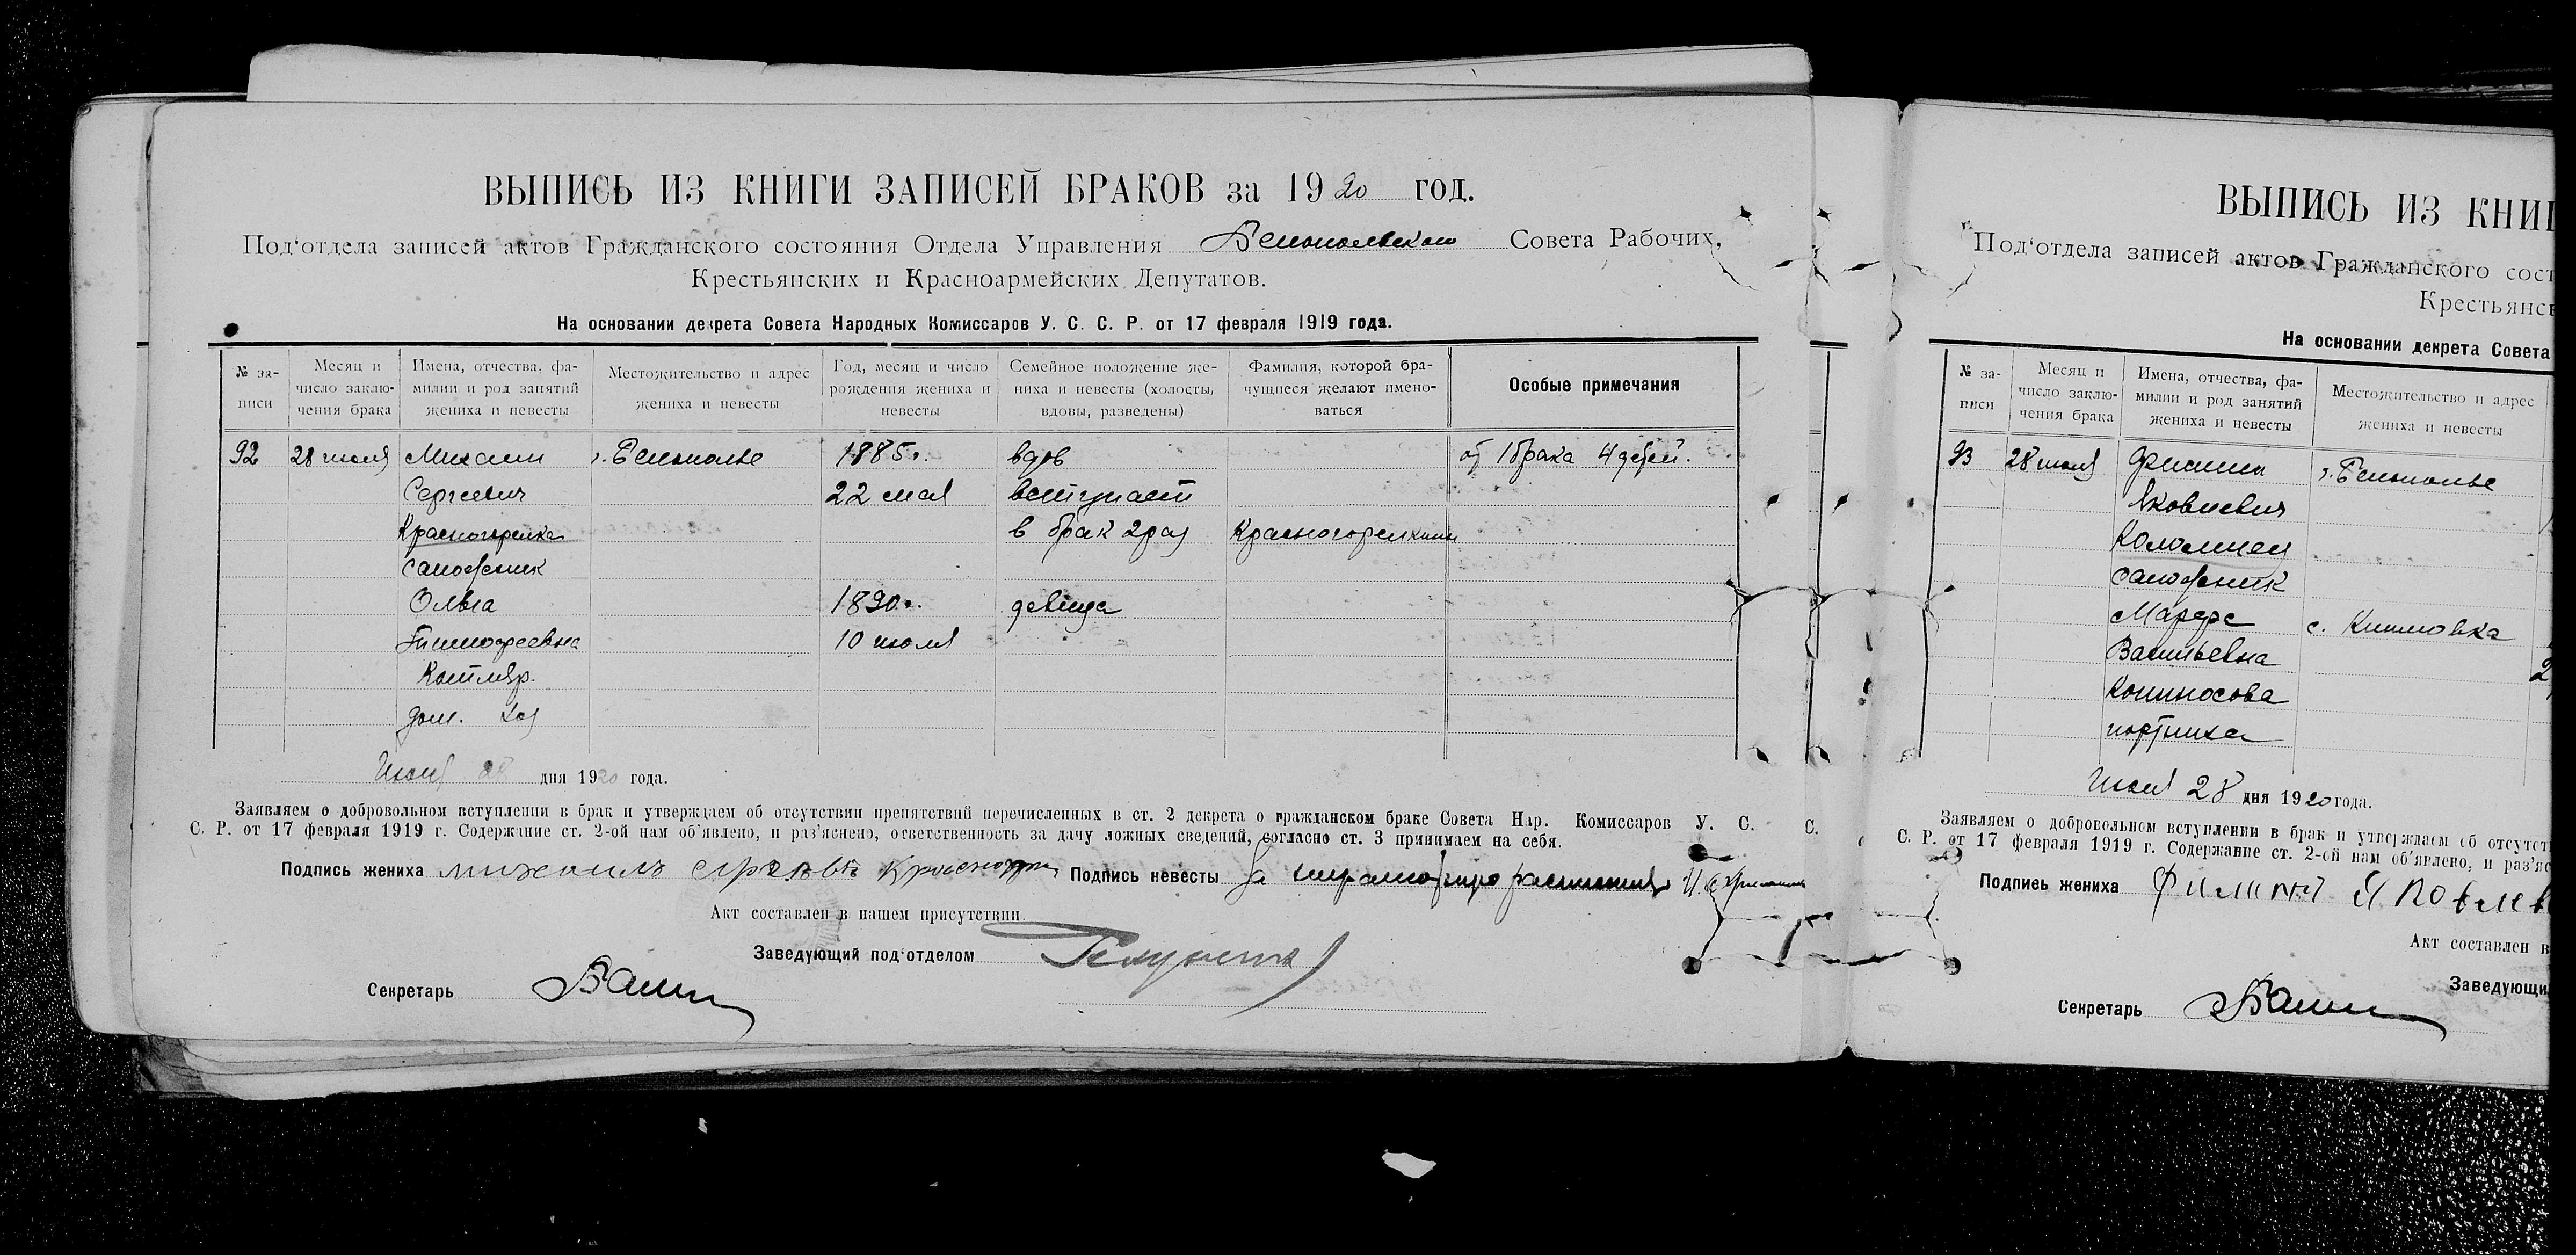 ВЫПИСЬ ИЗ КНИГИ ЗАПИСЕЙ БРАКОВ за 1920 год.
Под‘отдела записей актов Гражданского состояния Отдела Управления Белопольского Совета Рабочих,
Крестьянских и Красноармейских Депутатов.
На основании декрета Совета Народных Комиссаров У. С. С. Р. от 17 февраля 1919 года.
№ за-
писи
Месяц и
число заклю-
чения брака
Имена, отчества, фа-
милии и род занятий
жениха и невесты
Местожительство и адрес
жениха и невесты
Год, месяц и число
рождения жениха и
невесты
Семейное положение же-
ниха и невесты (холосты,
вдовы, разведены)
Фамилия, которой бра-
чущиеся желают имено-
ваться
Особые примечания
92 28 июля Михаил г. Белополье 1885 г. вдов от 1 брака 4 детей.
Сергеевич 22 мая вступает
в брак 2 раз
сапожник
Ольга 1890 г. девица
Тимофеевна 10 июля
Котляр.
дом. хоз
Июля 28 дня 1920 года.
Заявляем о добровольном вступлении в брак и утверждаем об отсутствии препятствий перечисленных в ст. 2 декрета о гражданском браке Совета Нар. Комиссаров У. С. С.
С. Р. от 17 февраля 1919 г. Содержание ст. 2-ой нам об‘явлено, и раз‘яснено, ответственность за дачу ложных сведений, согласно ст. 3 принимаем на себя.
Подпись жениха
Подпись невесты За
Акт составлен в нашем присутствии
Заведующий под‘отделом
Секретарь
ВЫПИСЬ ИЗ КНИГ
Под‘отдела записей актов Гражданского сост
Крестьянск
На основании декрета Совета
№ за-
писи
Месяц и
число заклю-
чения брака
Имена, отчества, фа-
милии и род занятий
жениха и невесты
Местожительство и адрес
жениха и невесты
93 28 июля Филипп г. Белополье
Яковлевич
Коломиец
сапожник
Марфа
Васильевна
портниха
Июля 28 дня 1920 года.
Заявляем о добровольном вступлении в брак и утверждаем об отсутст
С. Р. от 17 февраля 1919 г. Содержание ст. 2-ой нам об‘явлено, и раз‘яс
Подпись жениха Филипп Яковлев
Акт составлен в
Заведующи
Секретарь